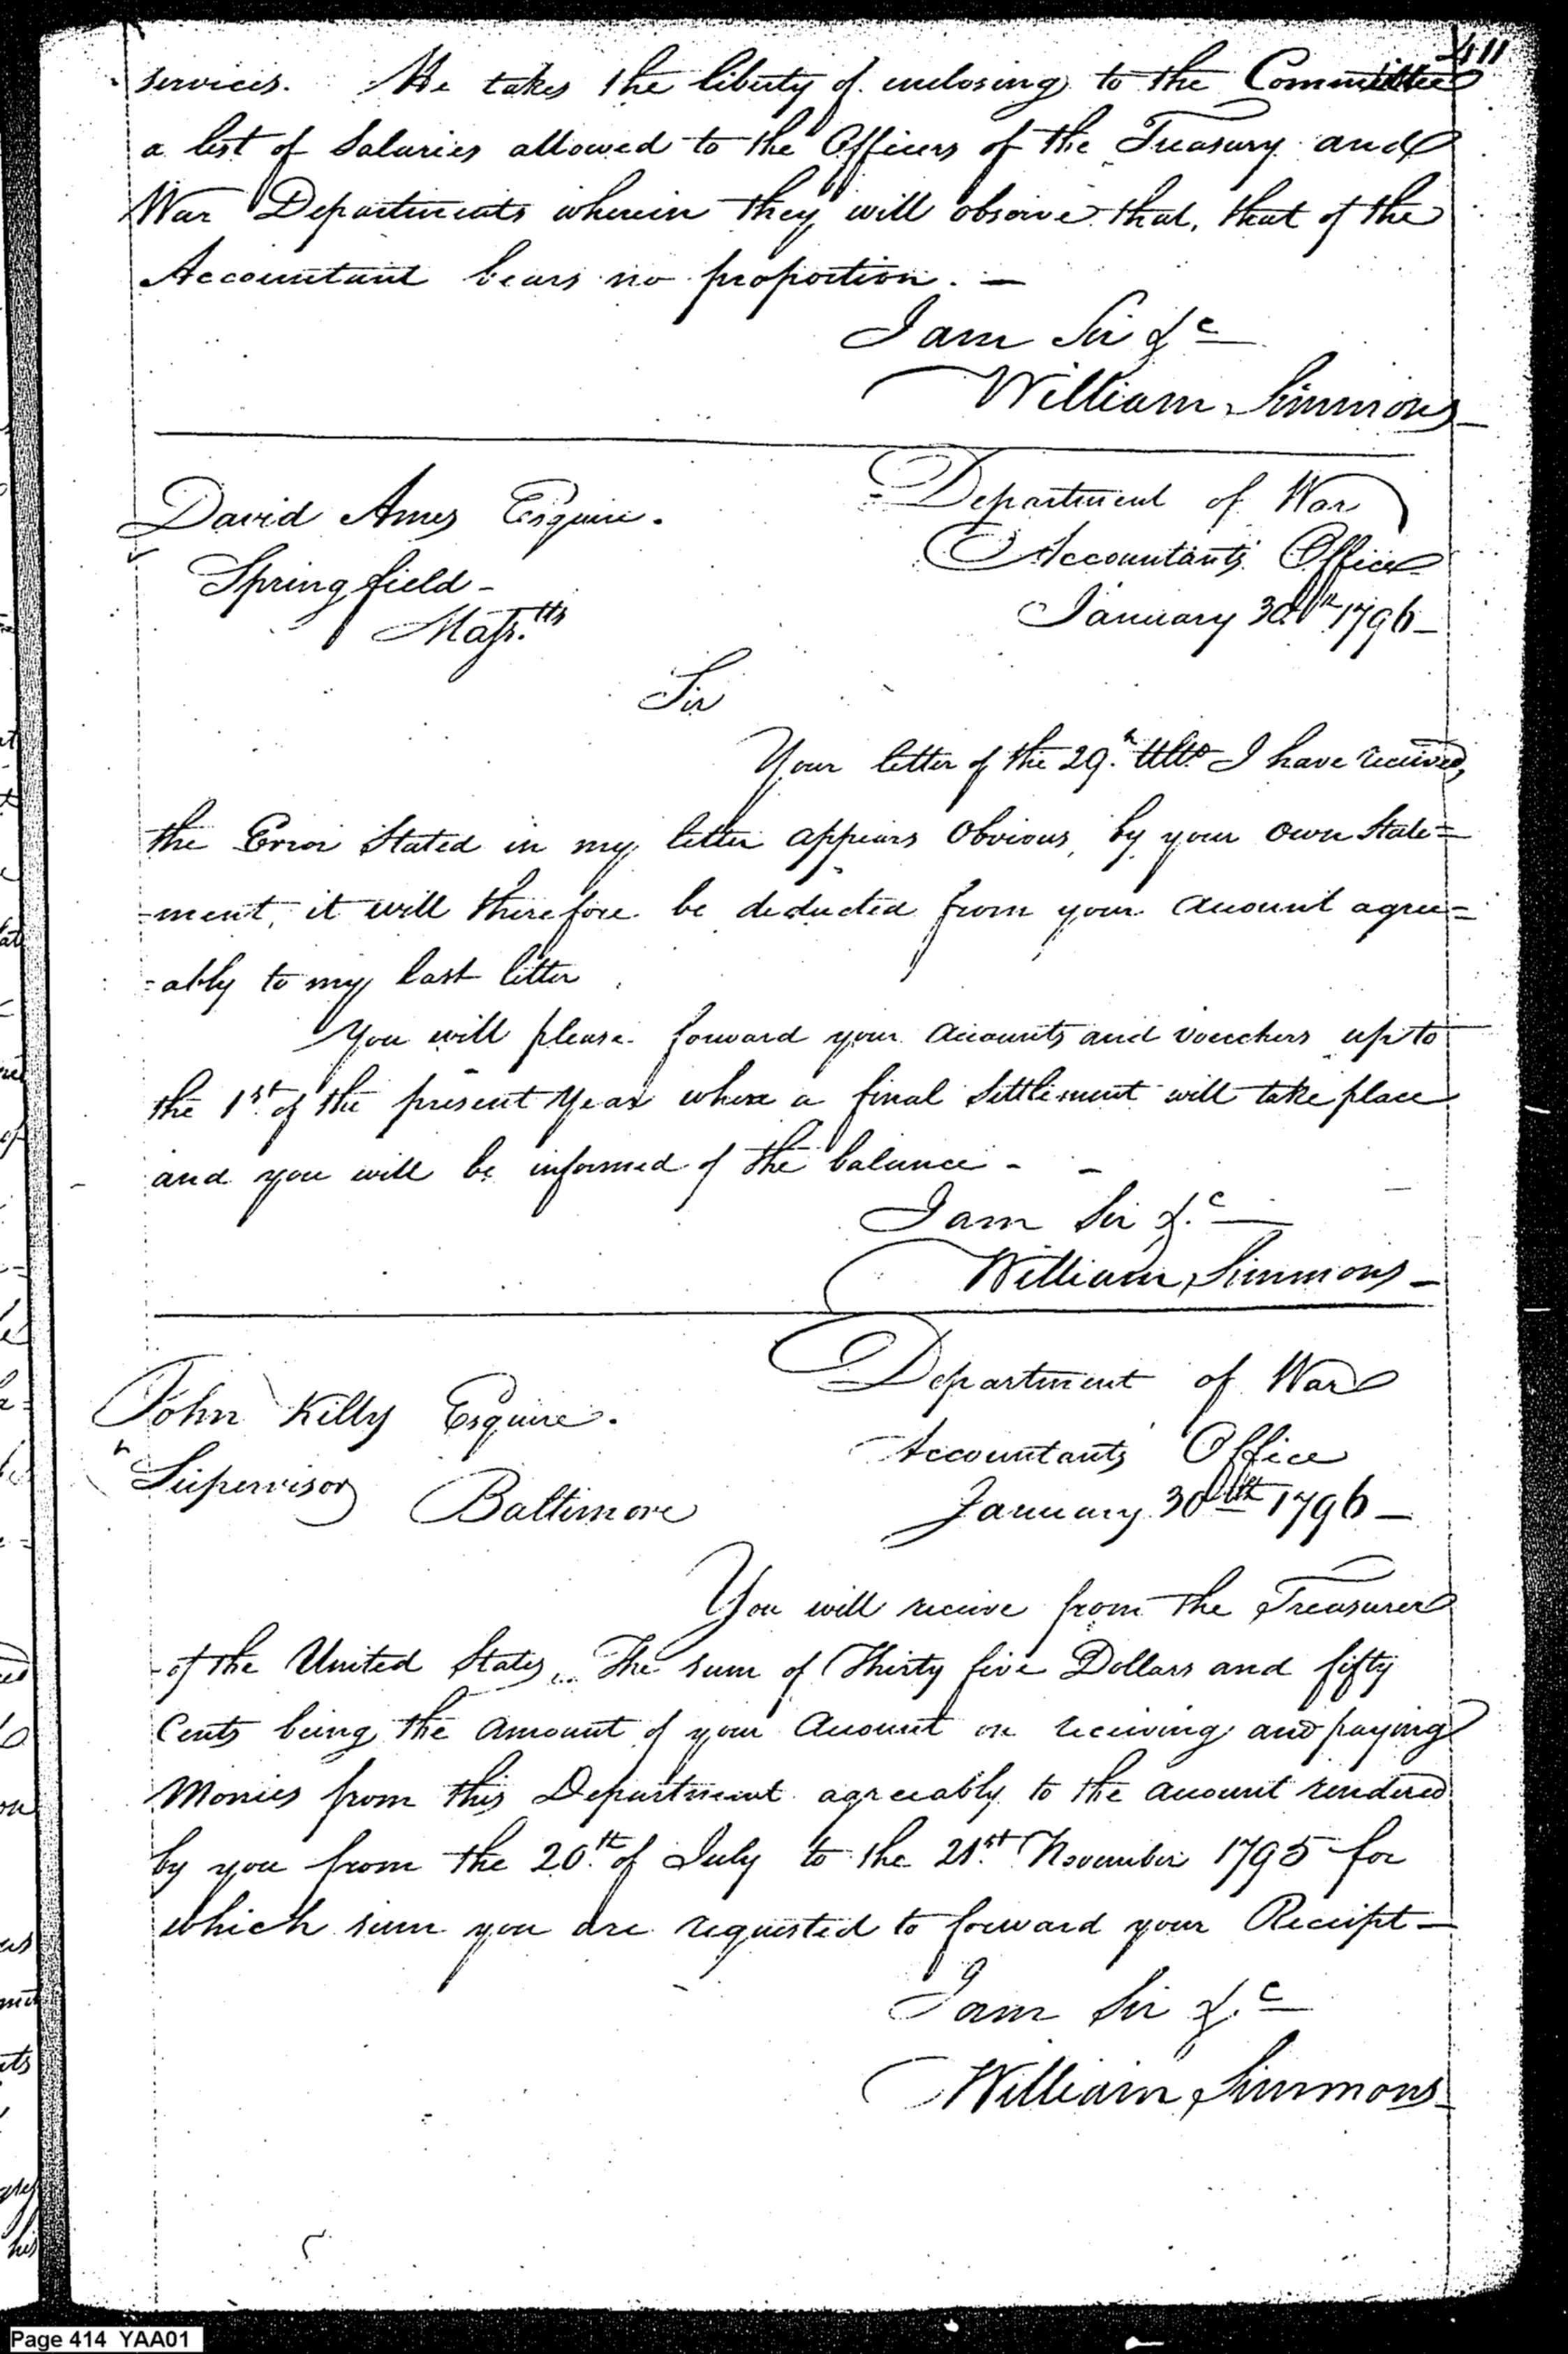 411
services. He takes the liberty of enclosing to the Committee
a list of Salaries allowed to the Officers of the Treasury and
War Departments wherein they will observe that, that of the
Accountant bears no proportion. —
I am Sir &c
William Simmons
David Ames Esquire.
Department of War
Accountants Office
Springfield -
Massts
January 30th 1796 -
Sir
Your letter of the 29th Ulto I have received,
the Error Stated in my letter appears Obvious, by your own State=
=ment, it will therefore be deducted from your Account agree=
=ably to my last letter
You will please forward your Accounts and Vouchers up to
the 1st of the present Year where a final Settlement will take place
and you will be informed of the balance - -
I am Sir &c
William Simmons -
John Killy Esquire.
Department of War
Supervisor Baltimore
Accountants Office
January 30th 1796 -
You will receive from the Treasurer
of the United States, The sum of Thirty five Dollars and fifty
Cents being the Amount of your Account on receiving and paying
Monies from this Department agreeably to the Account rendered
by you from the 20th of July to the 21st November 1795 for
which sum you are requested to forward your Receipt -
I am Sir &c
William Simmons
Page 414 YAA01